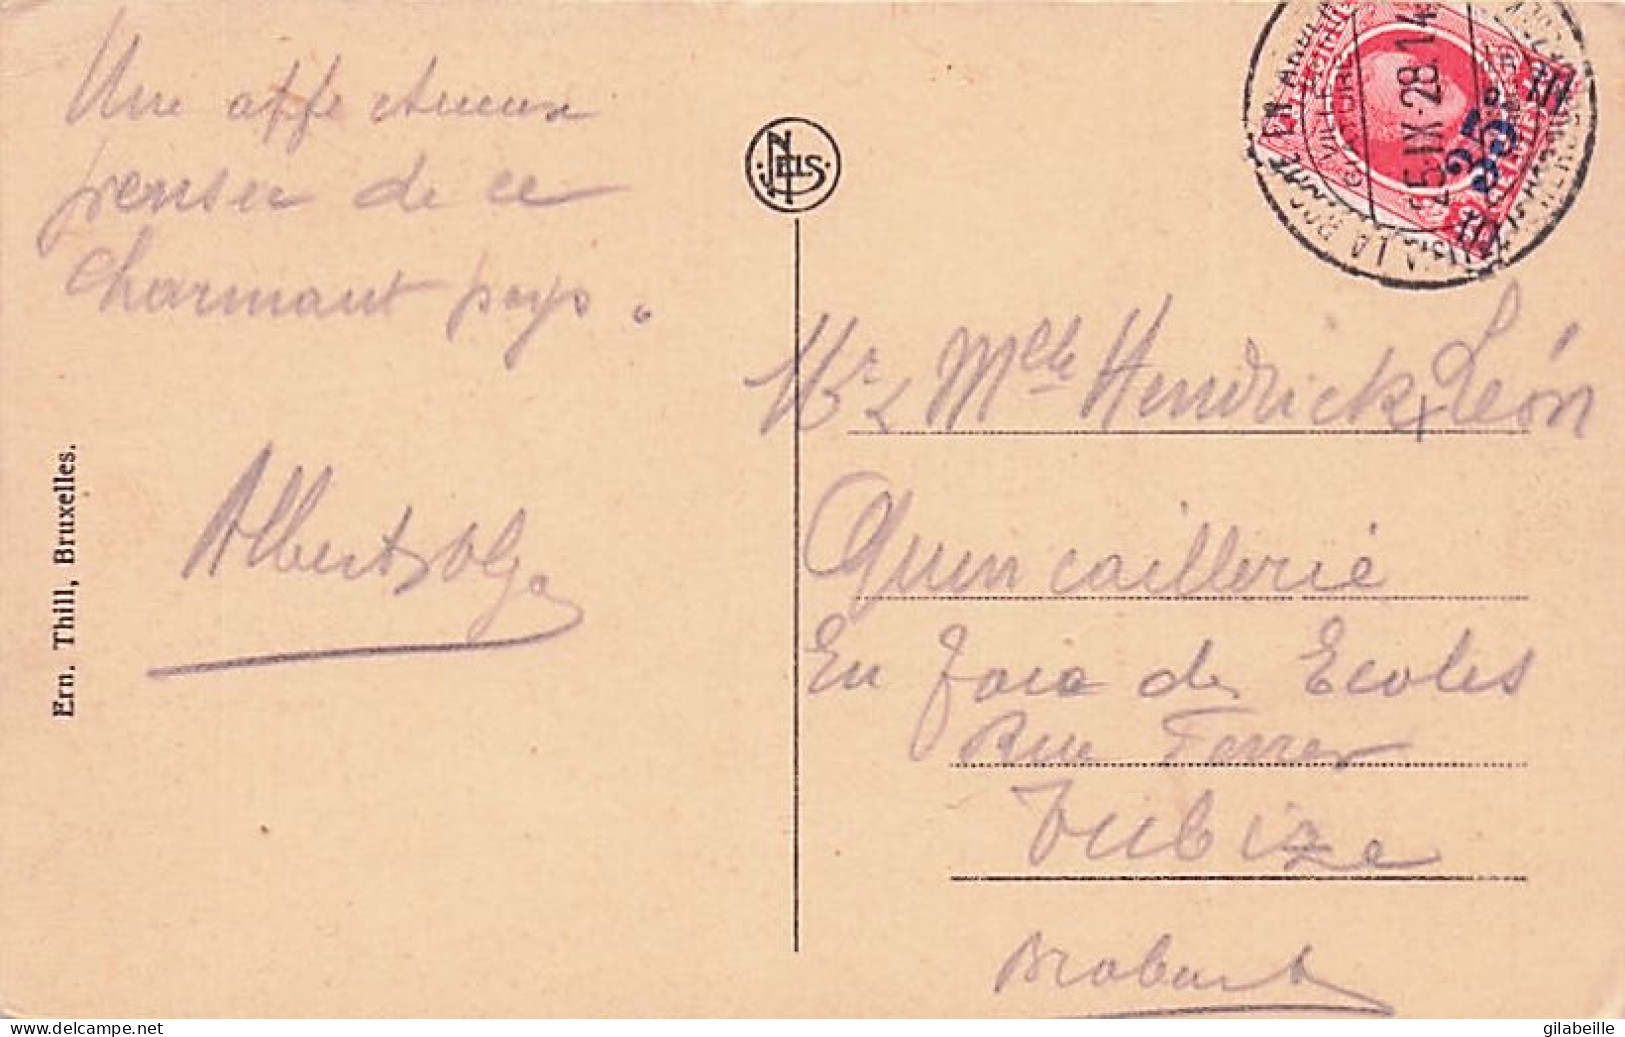 Une affectueuse
penser de ce
charmant pays.
Albert & Olga
Ern. Thill, Bruxelles.
NELS
25·IX·28·14
35c
Mr & Mlle Hendrickx Léon
Quincaillerie
En face des Ecoles
Rue Ferrer
Tubize
Brabant
gilabeille